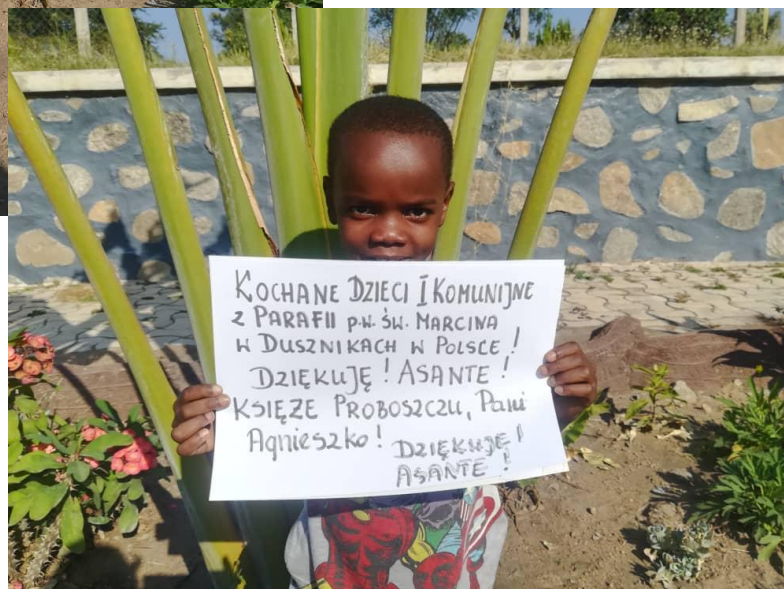 KOCHANE DZIECI I KOMUNIJNE
Z PARAFII P.W. ŚW. MARCINA
W DUSZNIKACH W POLSCE!
DZIĘKUJĘ! ASANTE!
KSIĘŻE PROBOSZCZU, Pani
Agnieszko! DZIĘKUJĘ!
ASANTE!